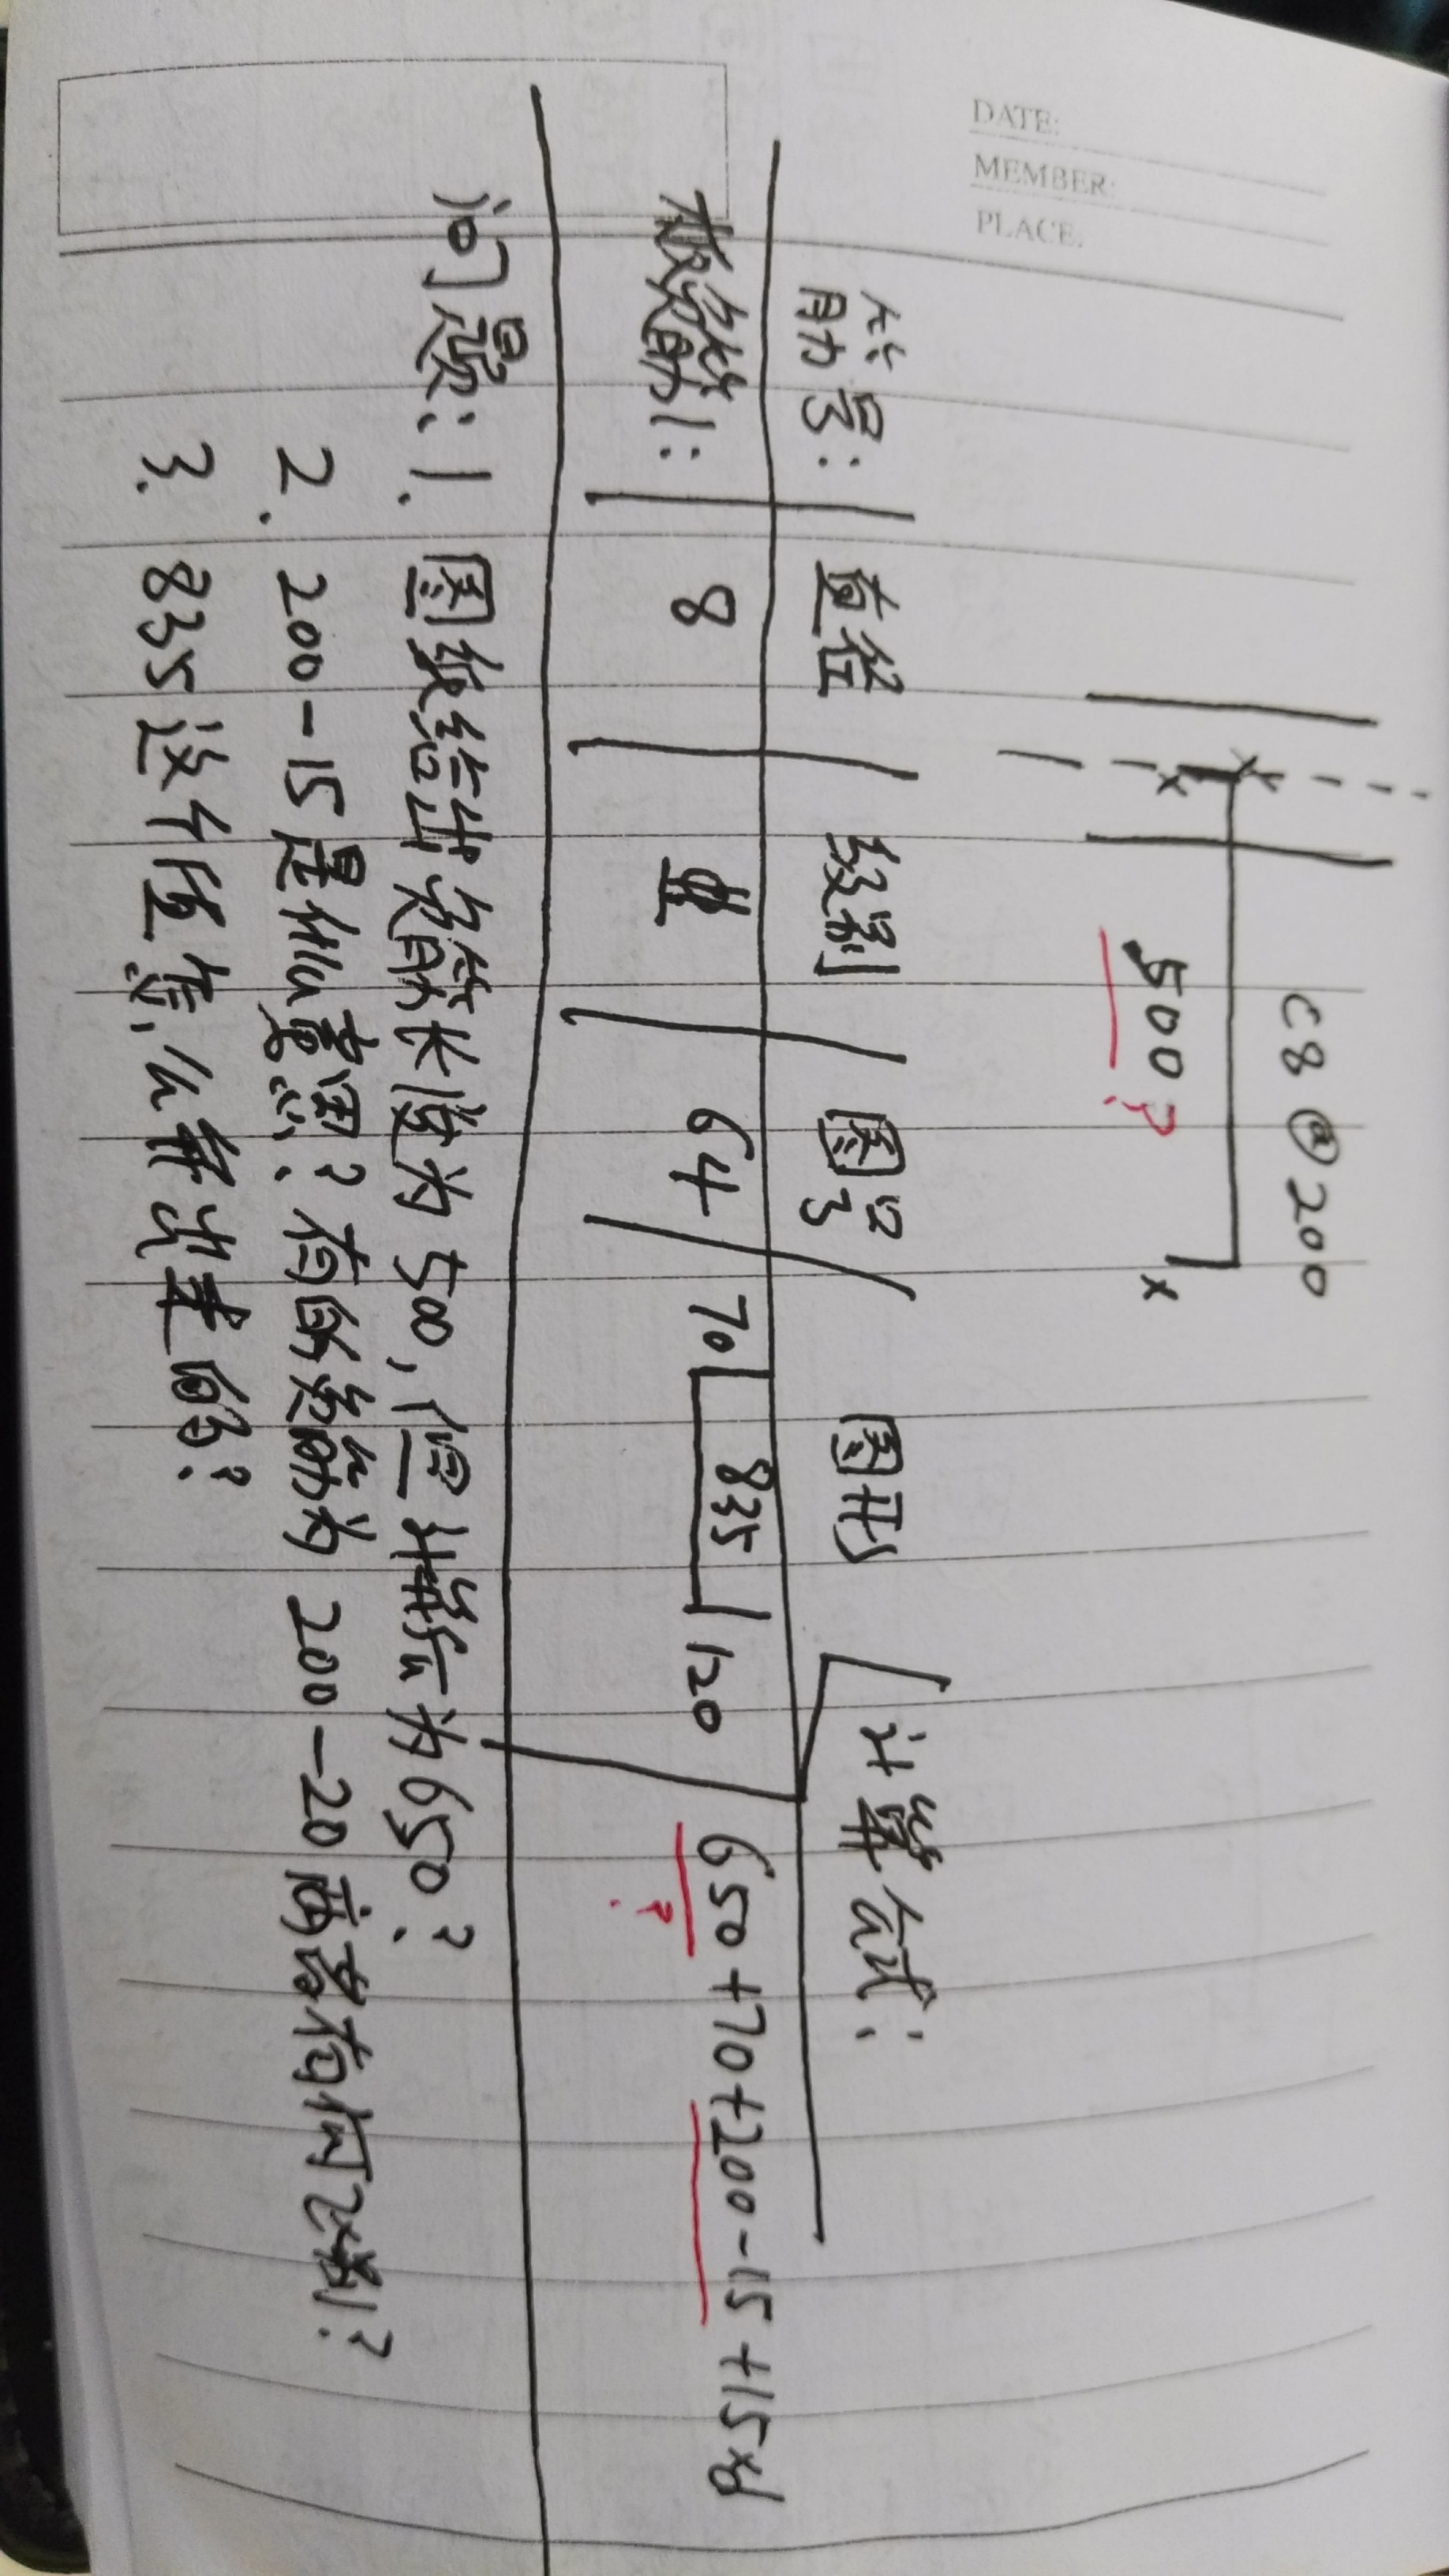 DATE:
MEMBER:
PLACE:
C8@200
500?
筋号: 直径 级别 图号 图形 计算公式:
板负筋1: 8 64 70 835 120 650+70+200-15+15×d
?
问题: 1. 图纸给出负筋长度为500,但计算后为650?
2. 200-15是什么意思?有的负筋为200-20两者有何区别?
3. 835这个值怎么算出来的?